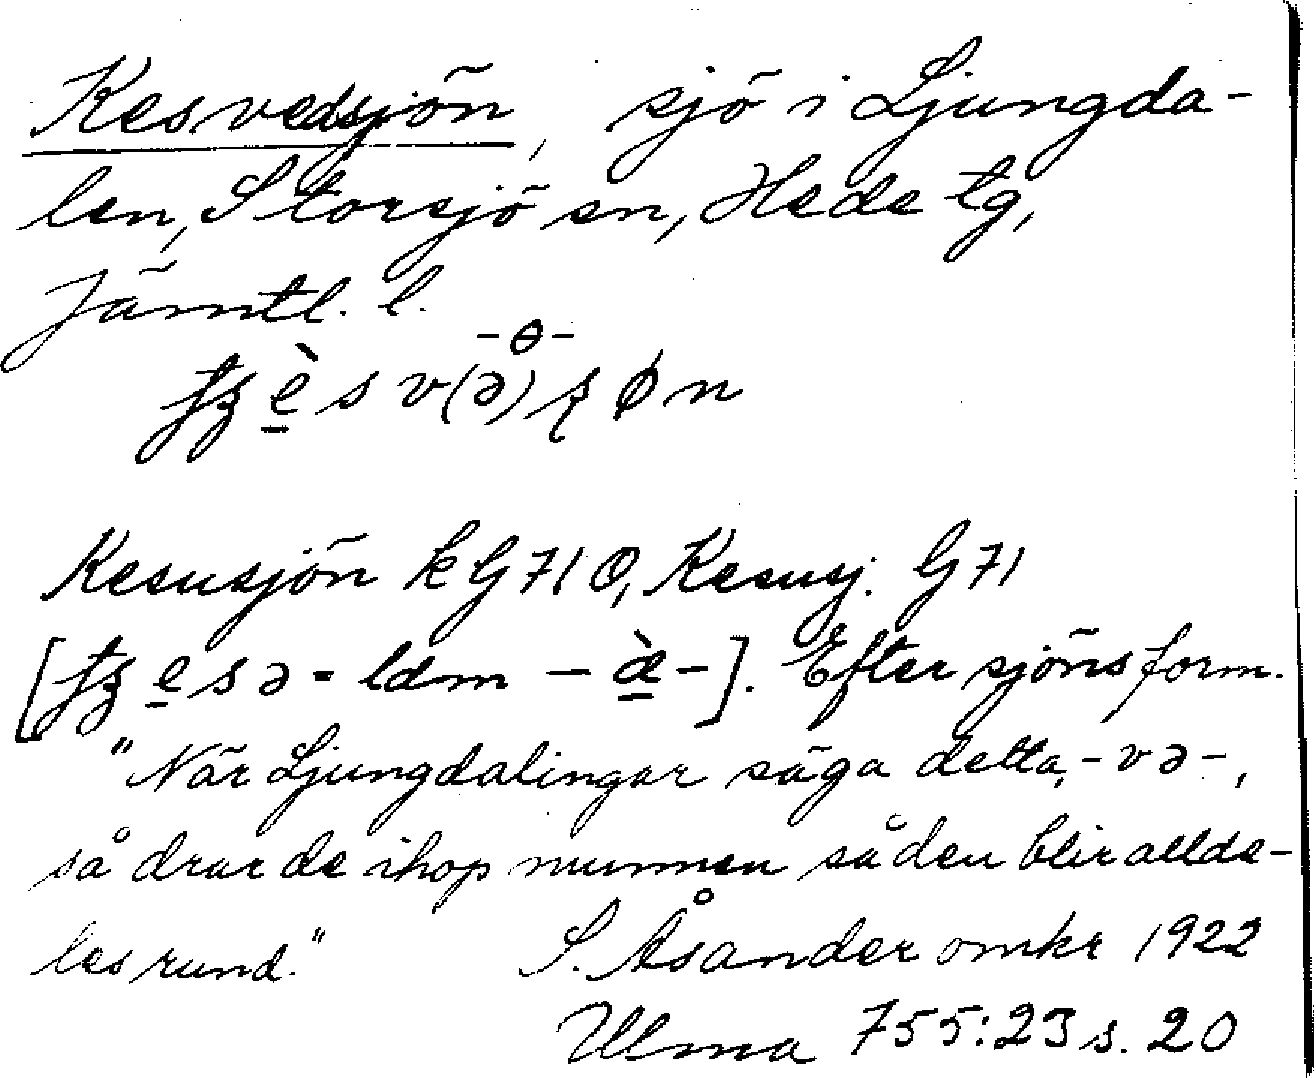 Kesvedsjön, sjö i Ljungda-
len, Storsjö sn, Hede tg,
Jämtl. l.
-ɵ-
fʒ è s v(ə) ʂ ø n
Kesusjön k G 71 Ö, Kesusj. G 71
[fʒ e s ə = ldm – æ̀ -]. Efter sjöns form.
"När Ljungdalingar säga detta, -və-,
så drar de ihop munnen så den blir allde-
les rund."   S. Åsander omkr 1922
Ulma 755:23 s. 20